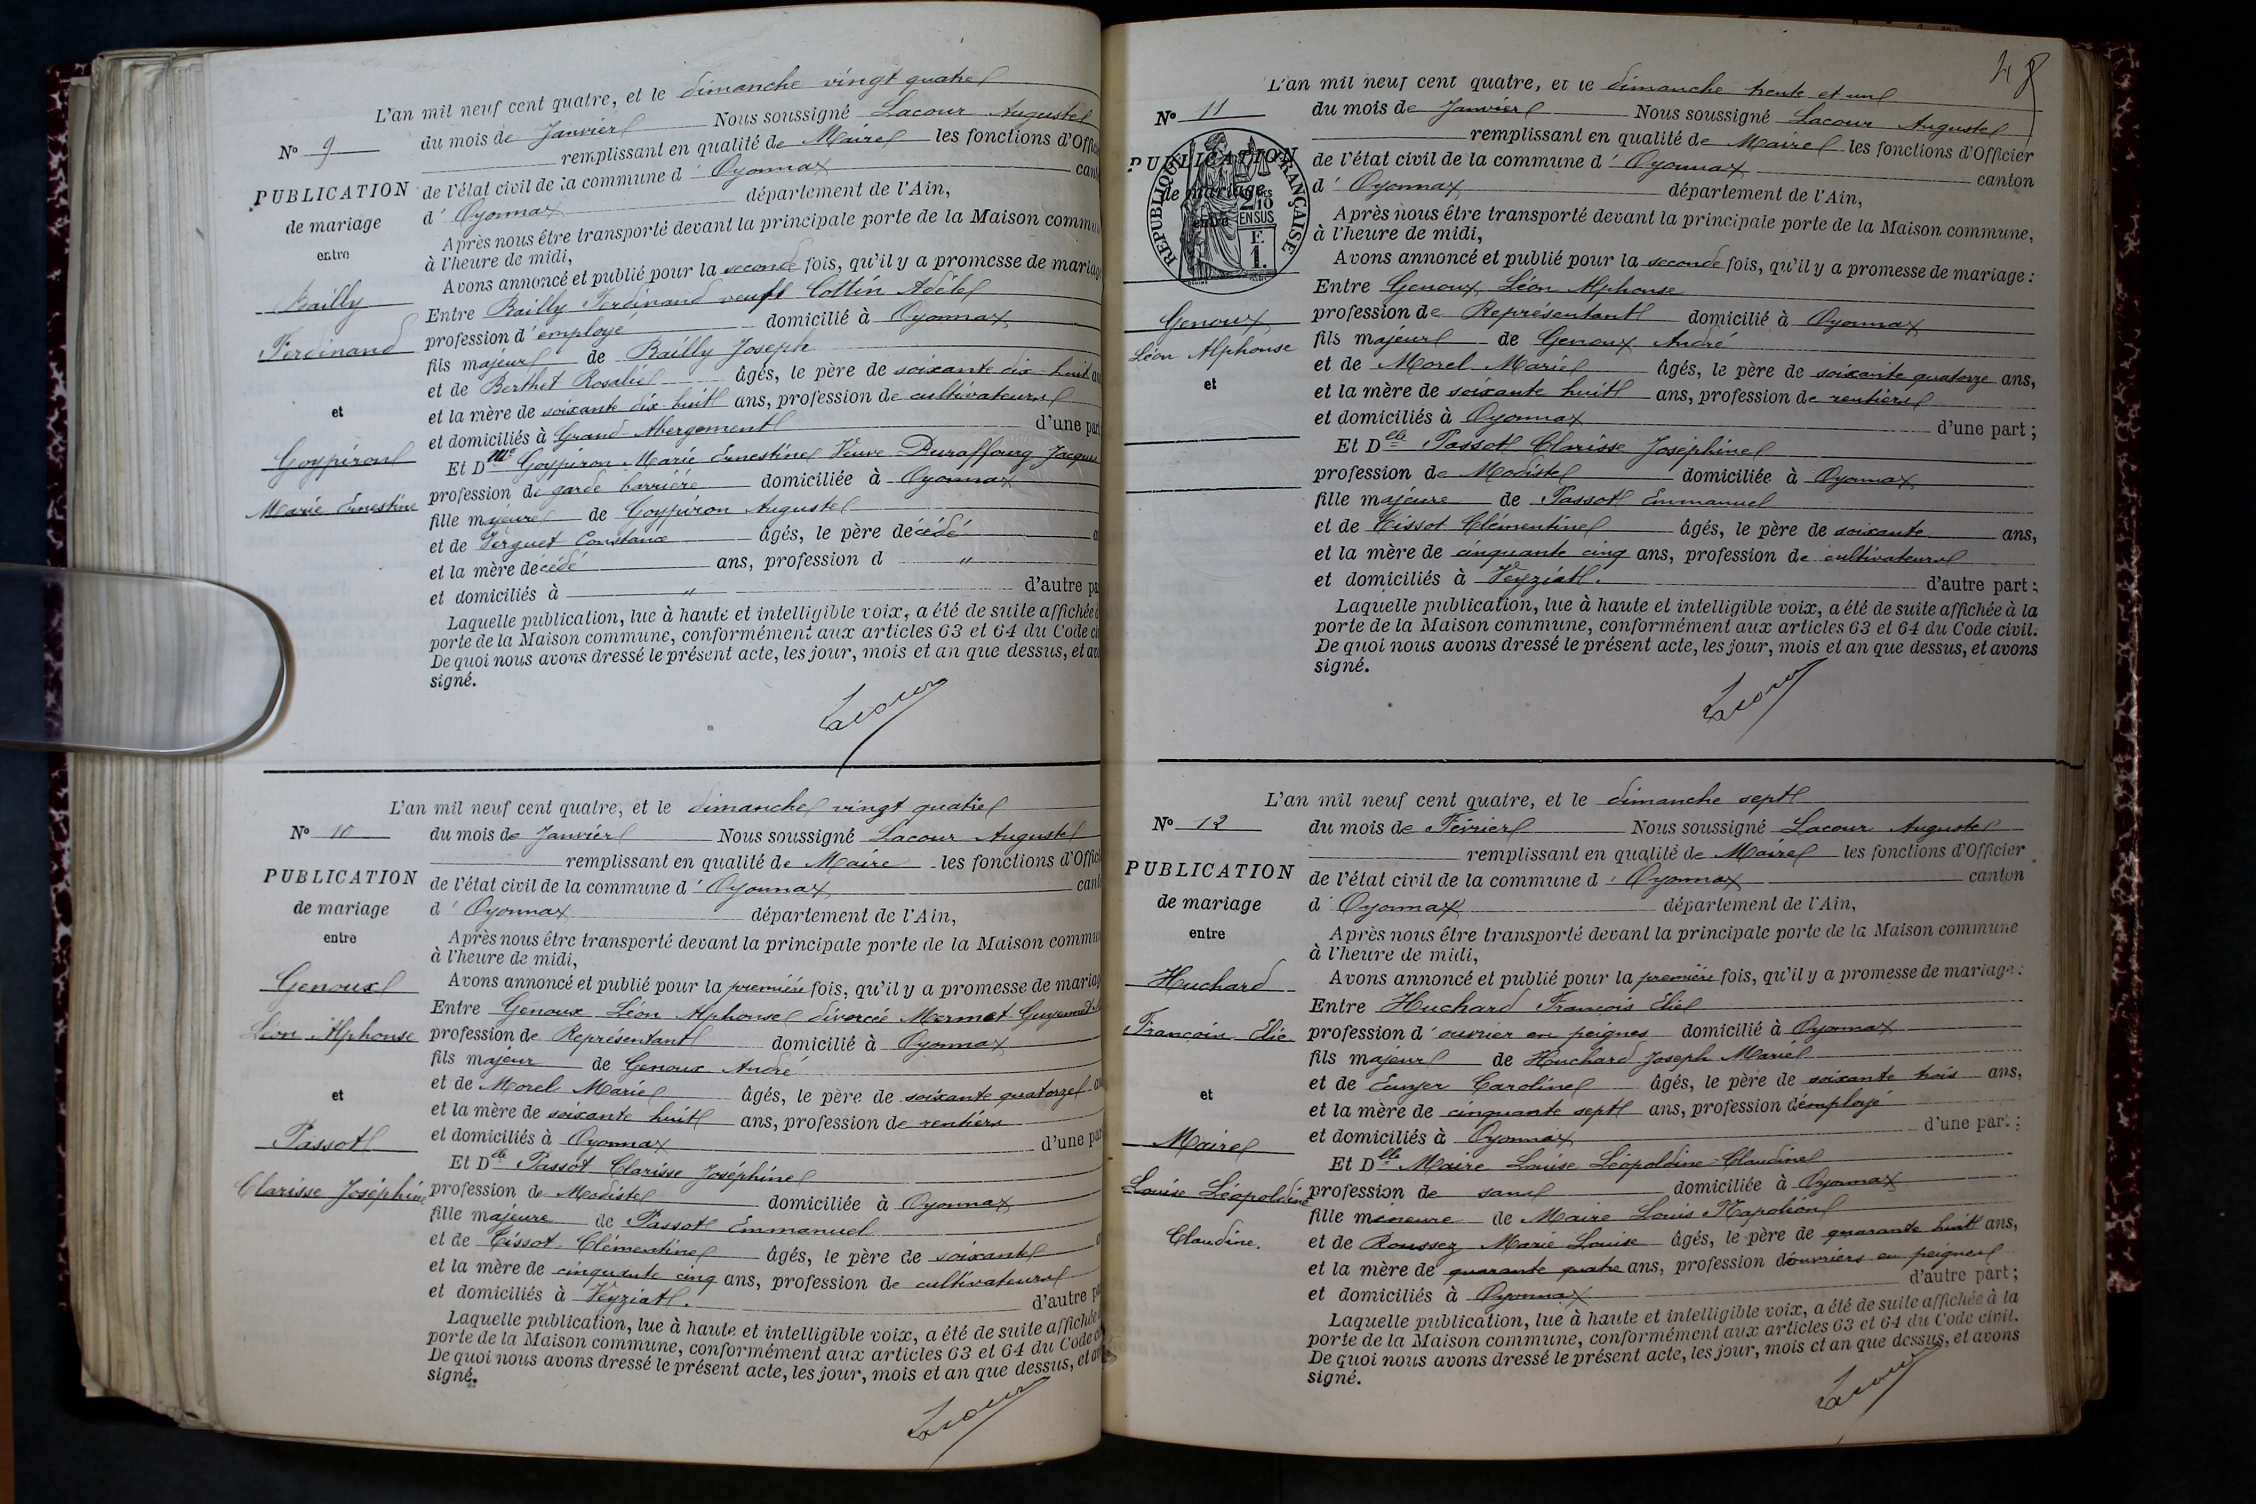 L'an mil neuf cent quatre, et le dimanche vingt quatre
N° 9
du mois de Janvier Nous soussigné Lacour Auguste
remplissant en qualité de Maire les fonctions d'Offic
PUBLICATION
de mariage
entre
de l'état civil de la commune d' Oyonnax cant
d' Oyonnax département de l'Ain,
Après nous être transporté devant la principale porte de la Maison commu
à l'heure de midi,
Avons annoncé et publié pour la seconde fois, qu'il y a promesse de mariag
Bailly
Ferdinand
et
Goypiron
Marie Ernestine
Entre Bailly Ferdinand veuf Cottin Adèle
profession d'employé domicilié à Oyonnax
fils majeur de Bailly Joseph
et de Berthet Rosalie âgés, le père de soixante dix-huit an
et la mère de soixante dix-huit ans, profession de cultivateurs
et domiciliés à Grand-Abergement d'une part
Et Dme Goypiron Marie Ernestine Veuve Duraffourg Jacques
profession de garde barrière domiciliée à Oyonnax
fille majeure de Goypiron Auguste
et de Verguet Constance âgés, le père décédé a
et la mère décédé ans, profession d "
et domiciliés à " d'autre pa
Laquelle publication, lue à haute et intelligible voix, a été de suite affichée à
porte de la Maison commune, conformément aux articles 63 et 64 du Code ci
De quoi nous avons dressé le présent acte, les jour, mois et an que dessus, et avo
signé.
Lacour
L'an mil neuf cent quatre, et le dimanche vingt quatre
N° 10
du mois de Janvier Nous soussigné Lacour Auguste
remplissant en qualité de Maire les fonctions d'Offici
PUBLICATION
de mariage
entre
de l'état civil de la commune d' Oyonnax cant
d' Oyonnax département de l'Ain,
Après nous être transporté devant la principale porte de la Maison commu
à l'heure de midi,
Avons annoncé et publié pour la première fois, qu'il y a promesse de mariag
Genoux
Léon Alphonse
et
Passot
Clarisse Joséphine
Entre Genoux Léon Alphonse divorcé Mermet-Guyennet
profession de Représentant domicilié à Oyonnax
fils majeur de Genoux André
et de Morel Marie âgés, le père de soixante quatorze an
et la mère de soixante huit ans, profession de rentiers
et domiciliés à Oyonnax d'une par
Et Dlle Passot Clarisse Joséphine
profession de Modiste domiciliée à Oyonnax
fille majeure de Passot Emmanuel
et de Tissot Clémentine âgés, le père de soixante a
et la mère de cinquante cinq ans, profession de cultivateurs
et domiciliés à Veyziat. d'autre pa
Laquelle publication, lue à haute et intelligible voix, a été de suite affichée
porte de la Maison commune, conformément aux articles 63 et 64 du Code c
De quoi nous avons dressé le présent acte, les jour, mois et an que dessus, et av
signé.
Lacour
48
L'an mil neuf cent quatre, et le dimanche trente et un
N° 11
du mois de Janvier Nous soussigné Lacour Auguste
remplissant en qualité de Maire les fonctions d'Officier
PUBLICATION
de mariage
entre
RÉPUBLIQUE FRANÇAISE
2/10 EN SUS
F. 1.
de l'état civil de la commune d' Oyonnax canton
d' Oyonnax département de l'Ain,
Après nous être transporté devant la principale porte de la Maison commune,
à l'heure de midi,
Avons annoncé et publié pour la seconde fois, qu'il y a promesse de mariage :
Genoux
Léon Alphonse
et
Entre Genoux Léon Alphonse
profession de Représentant domicilié à Oyonnax
fils majeur de Genoux André
et de Morel Marie âgés, le père de soixante quatorze ans,
et la mère de soixante huit ans, profession de rentiers
et domiciliés à Oyonnax d'une part ;
Et Dlle Passot Clarisse Joséphine
profession de Modiste domiciliée à Oyonnax
fille majeure de Passot Emmanuel
et de Tissot Clémentine âgés, le père de soixante ans,
et la mère de cinquante cinq ans, profession de cultivateurs
et domiciliés à Veyziat. d'autre part ;
Laquelle publication, lue à haute et intelligible voix, a été de suite affichée à la
porte de la Maison commune, conformément aux articles 63 et 64 du Code civil.
De quoi nous avons dressé le présent acte, les jour, mois et an que dessus, et avons
signé.
Lacour
L'an mil neuf cent quatre, et le dimanche sept
N° 12
du mois de Février Nous soussigné Lacour Auguste
remplissant en qualité de Maire les fonctions d'Officier
PUBLICATION
de mariage
entre
de l'état civil de la commune d' Oyonnax canton
d' Oyonnax département de l'Ain,
Après nous être transporté devant la principale porte de la Maison commune
à l'heure de midi,
Avons annoncé et publié pour la première fois, qu'il y a promesse de mariage :
Huchard
François Elie
et
Maire
Louise Léopoldine
Claudine.
Entre Huchard François Elie
profession d'ouvrier en peignes domicilié à Oyonnax
fils majeur de Huchard Joseph Marie
et de Caroline âgés, le père de soixante trois ans,
et la mère de cinquante sept ans, profession d'employé
et domiciliés à Oyonnax d'une part ;
Et Dlle Maire Louise Léopoldine Claudine
profession de sans domiciliée à Oyonnax
fille mineure de Maire Louis Napoléon
et de Roussez Marie Louise âgés, le père de quarante huit ans,
et la mère de quarante quatre ans, profession d'ouvriers en peignes
et domiciliés à Oyonnax d'autre part ;
Laquelle publication, lue à haute et intelligible voix, a été de suite affichée à la
porte de la Maison commune, conformément aux articles 63 et 64 du Code civil.
De quoi nous avons dressé le présent acte, les jour, mois et an que dessus, et avons
signé.
Lacour